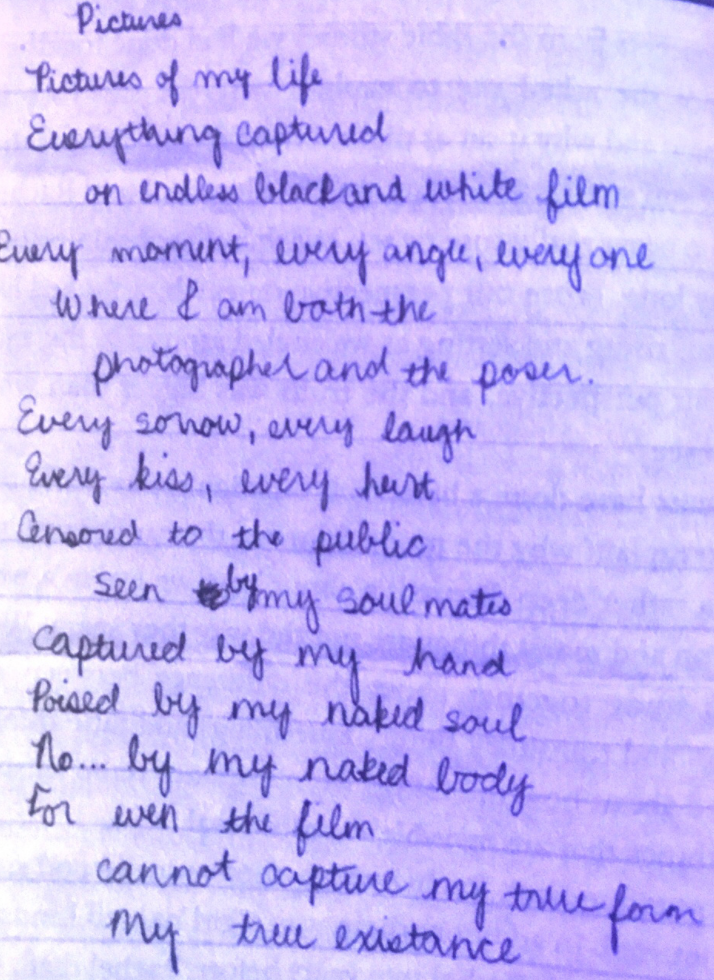 Pictures
Pictures of my life
Everything captured
on endless black and white film
Every moment, every angle, everyone
Where I am both the
photographer and the poser.
Every sorrow, every laugh
Every kiss, every hurt
Censored to the public
seen by my soulmates
Captured by my hand
Poised by my naked soul
No... by my naked body
For even the film
cannot capture my true form
My true existance